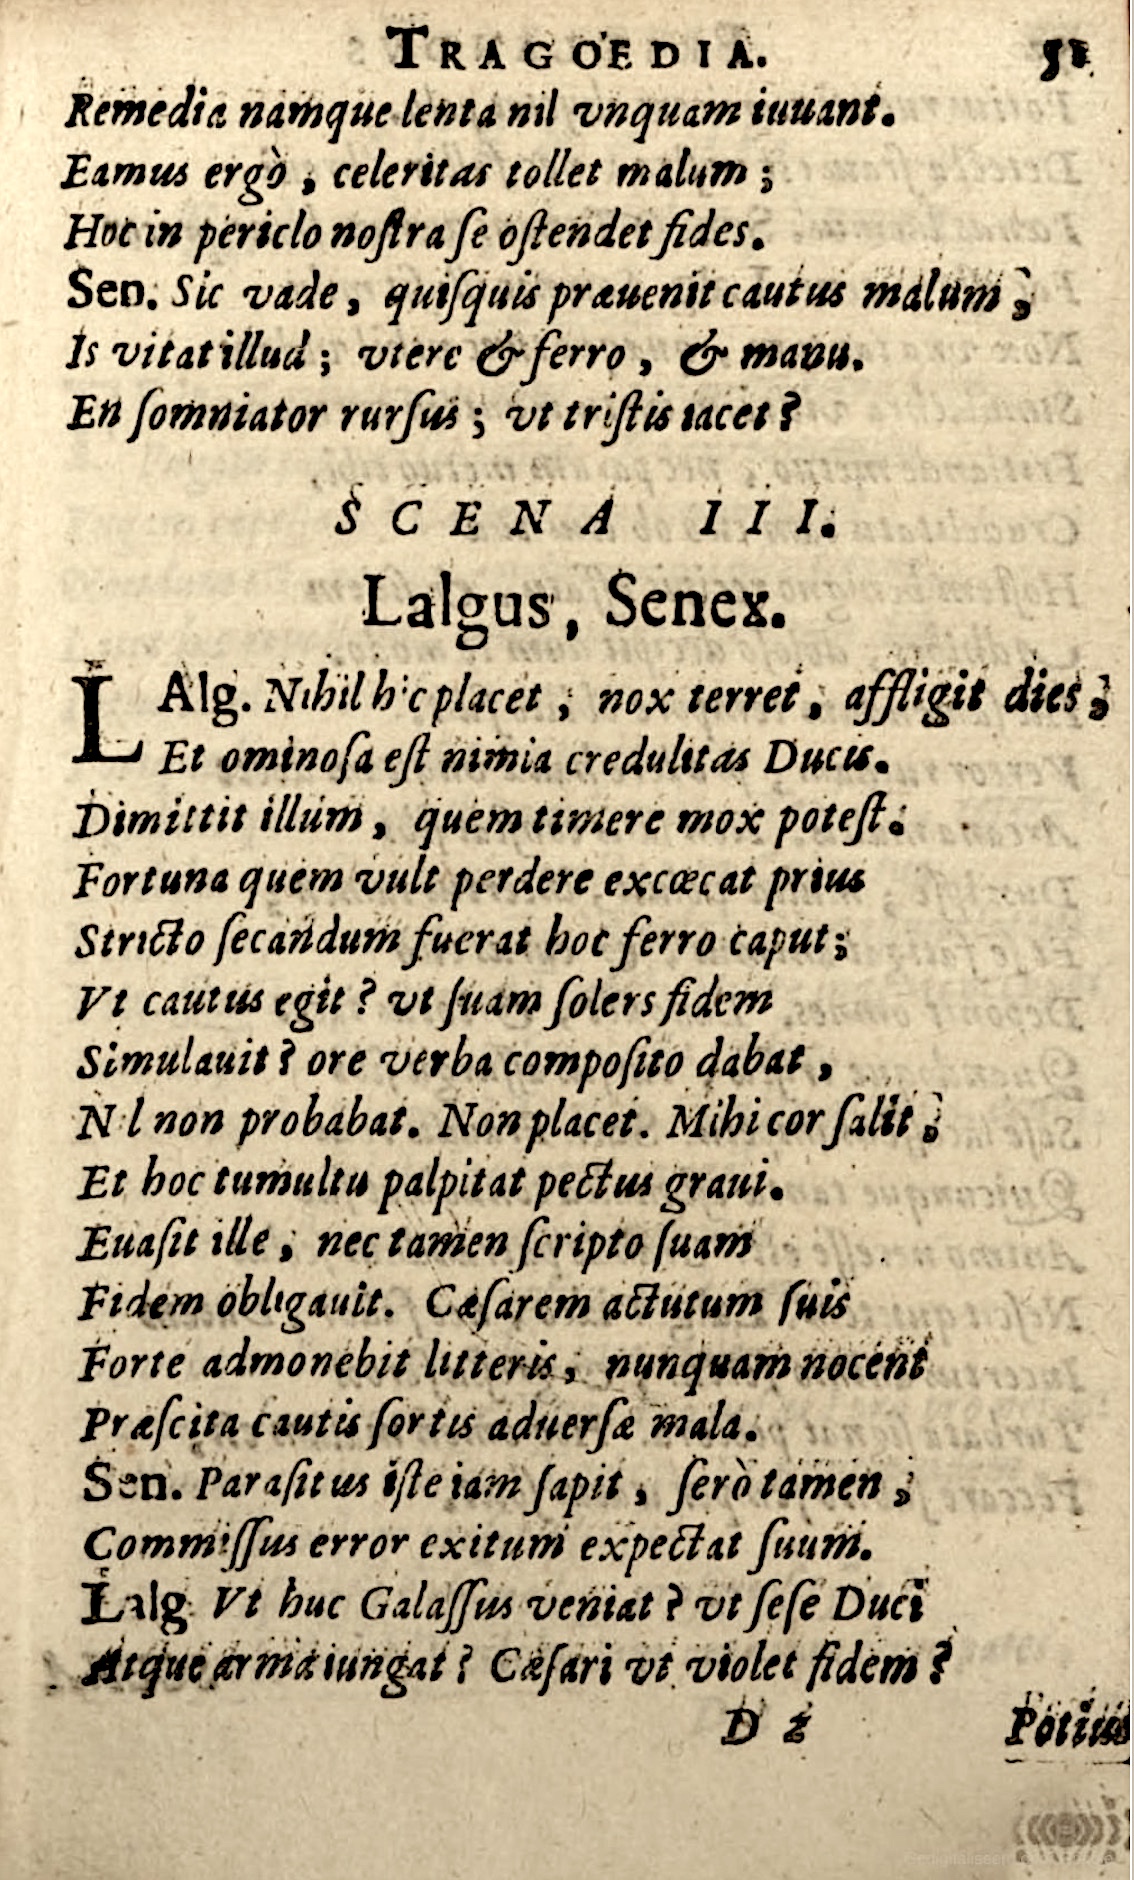 TRAGOEDIA. 51
Remedia namque lenta nil vnquam iuuant.
Eamus ergò, celeritas tollet malum;
Hoc in periclo noſtra ſe oſtendet fides.
Sen. Sic vade, quiſquis præuenit cautus malum,
Is vitat illud; vtere & ferro, & manu.
En ſomniator rurſus; vt triſtis iacet?
SCENA III.
Lalgus, Senex.
LAlg. Nihil hic placet; nox terret, affligit dies,
Et ominoſa eſt nimia credulitas Ducis.
Dimittit illum, quem timere mox poteſt:
Fortuna quem vult perdere excœcat prius
Stricto ſecandum fuerat hoc ferro caput;
Vt cautus egit? vt ſuam ſolers fidem
Simulauit? ore verba compoſito dabat,
Nil non probabat. Non placet. Mihi cor ſalit;
Et hoc tumultu palpitat pectus graui.
Euaſit ille, nec tamen ſcripto ſuam
Fidem obligauit. Cæſarem actutum ſuis
Forte admonebit litteris, nunquam nocent
Præſcita cautis ſortis aduerſæ mala.
Sen. Paraſitus iſte iam ſapit, ſerò tamen;
Commiſſus error exitum expectat ſuum.
Lalg Vt huc Galaſſus veniat? vt ſeſe Duci
Atque arma iungat? Cæſari vt violet fidem?
D 2 Potius